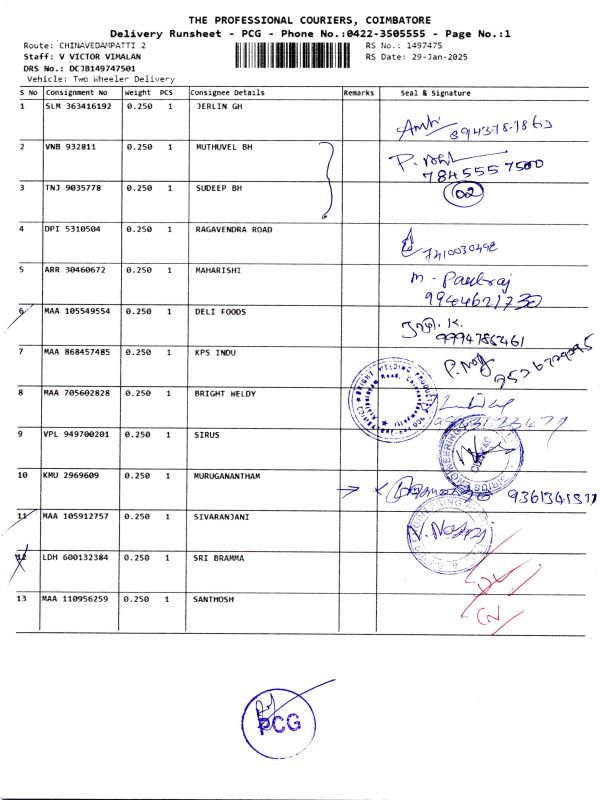 THE PROFESSIONAL COURIERS, COIMBATORE
Delivery Runsheet - PCG - Phone No.:0422-3505555 - Page No.:1
Route: CHINAVEDAMPATTI 2 RS No.: 1497475
Staff: V VICTOR VIMALAN RS Date: 29-Jan-2025
DRS No.: DCJB149747501
Vehicle: Two Wheeler Delivery
S No Consignment No Weight PCS Consignee Details Remarks Seal & Signature
1 SLM 363416192 0.250 1 JERLIN GH
2 VNB 932811 0.250 1 MUTHUVEL BH
7845557500
3 TNJ 9035778 0.250 1 SUDEEP BH
02
4 DPI 5310504 0.250 1 RAGAVENDRA ROAD
5 ARR 30460672 0.250 1 MAHARISHI
9944621730
6 MAA 105549554 0.250 1 DELI FOODS
7 MAA 868457485 0.250 1 KPS INDU
8 MAA 705602828 0.250 1 BRIGHT WELDY
9 VPL 949700201 0.250 1 SIRUS
10 KMU 2969609 0.250 1 MURUGANANTHAM
11 MAA 105912757 0.250 1 SIVARANJANI
12 LDH 600132384 0.250 1 SRI BRAMMA
13 MAA 110956259 0.250 1 SANTHOSH
PCG